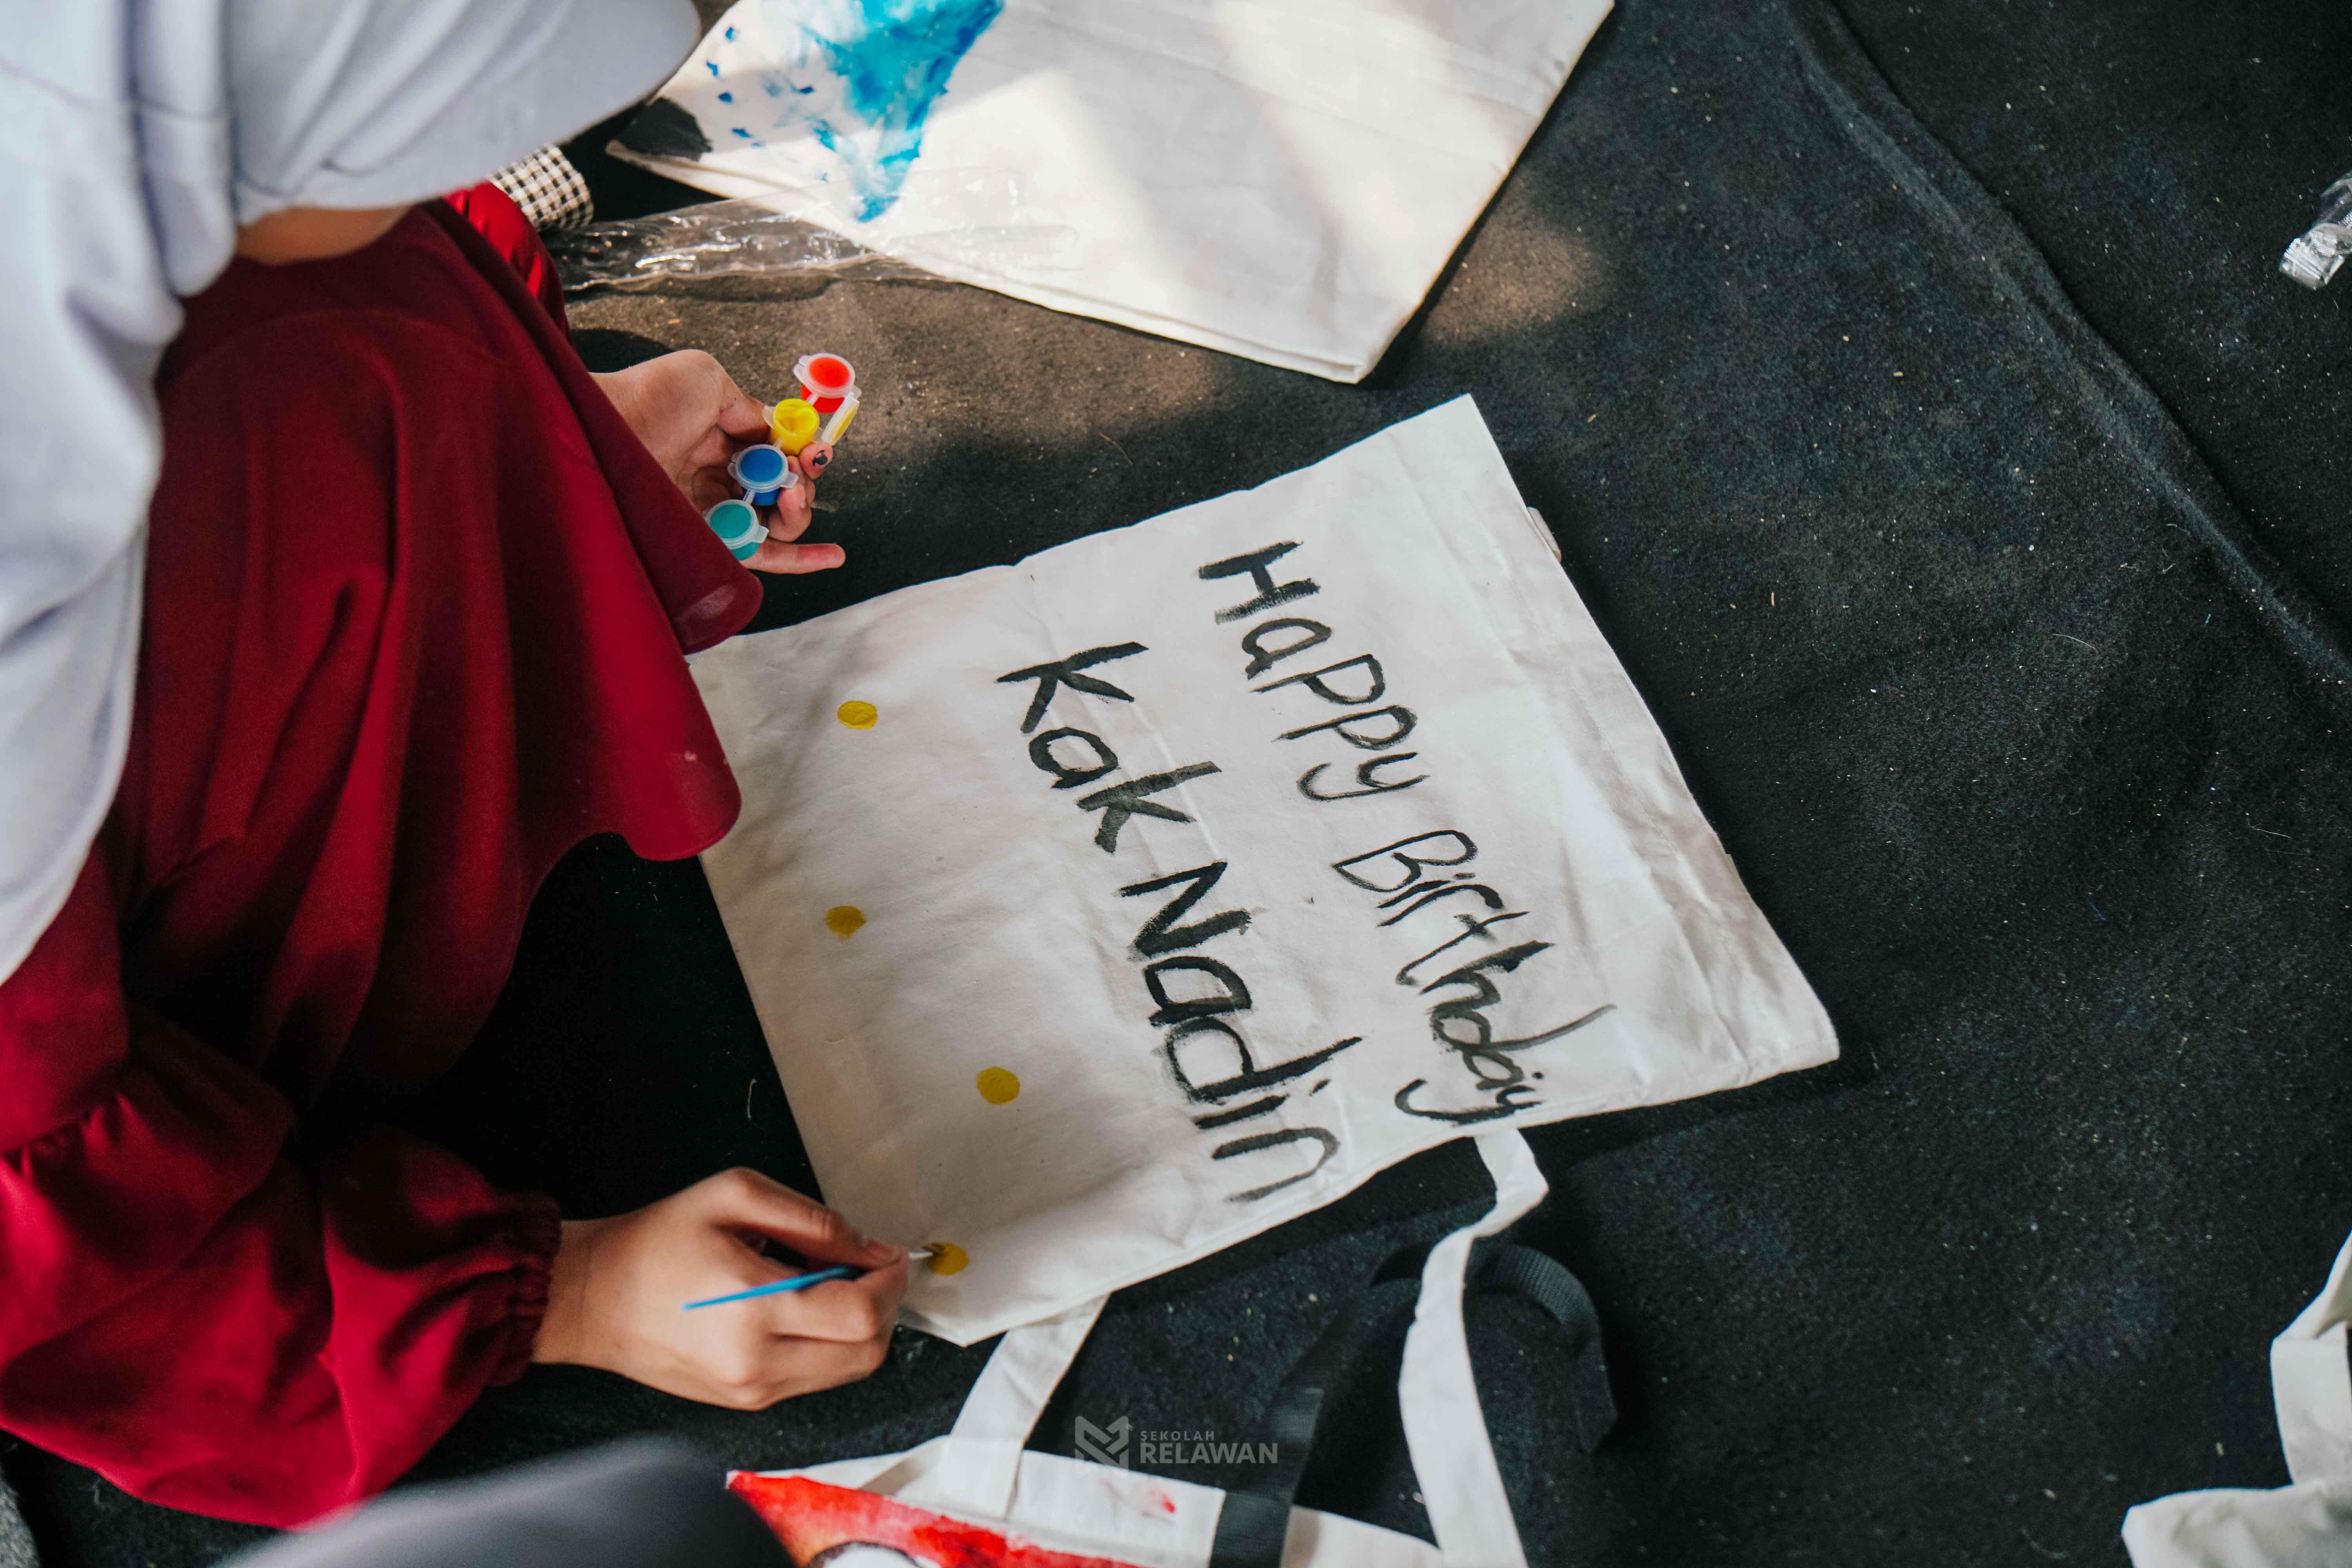 Happy Birthday
Kak Nadin
SEKOLAH
RELAWAN